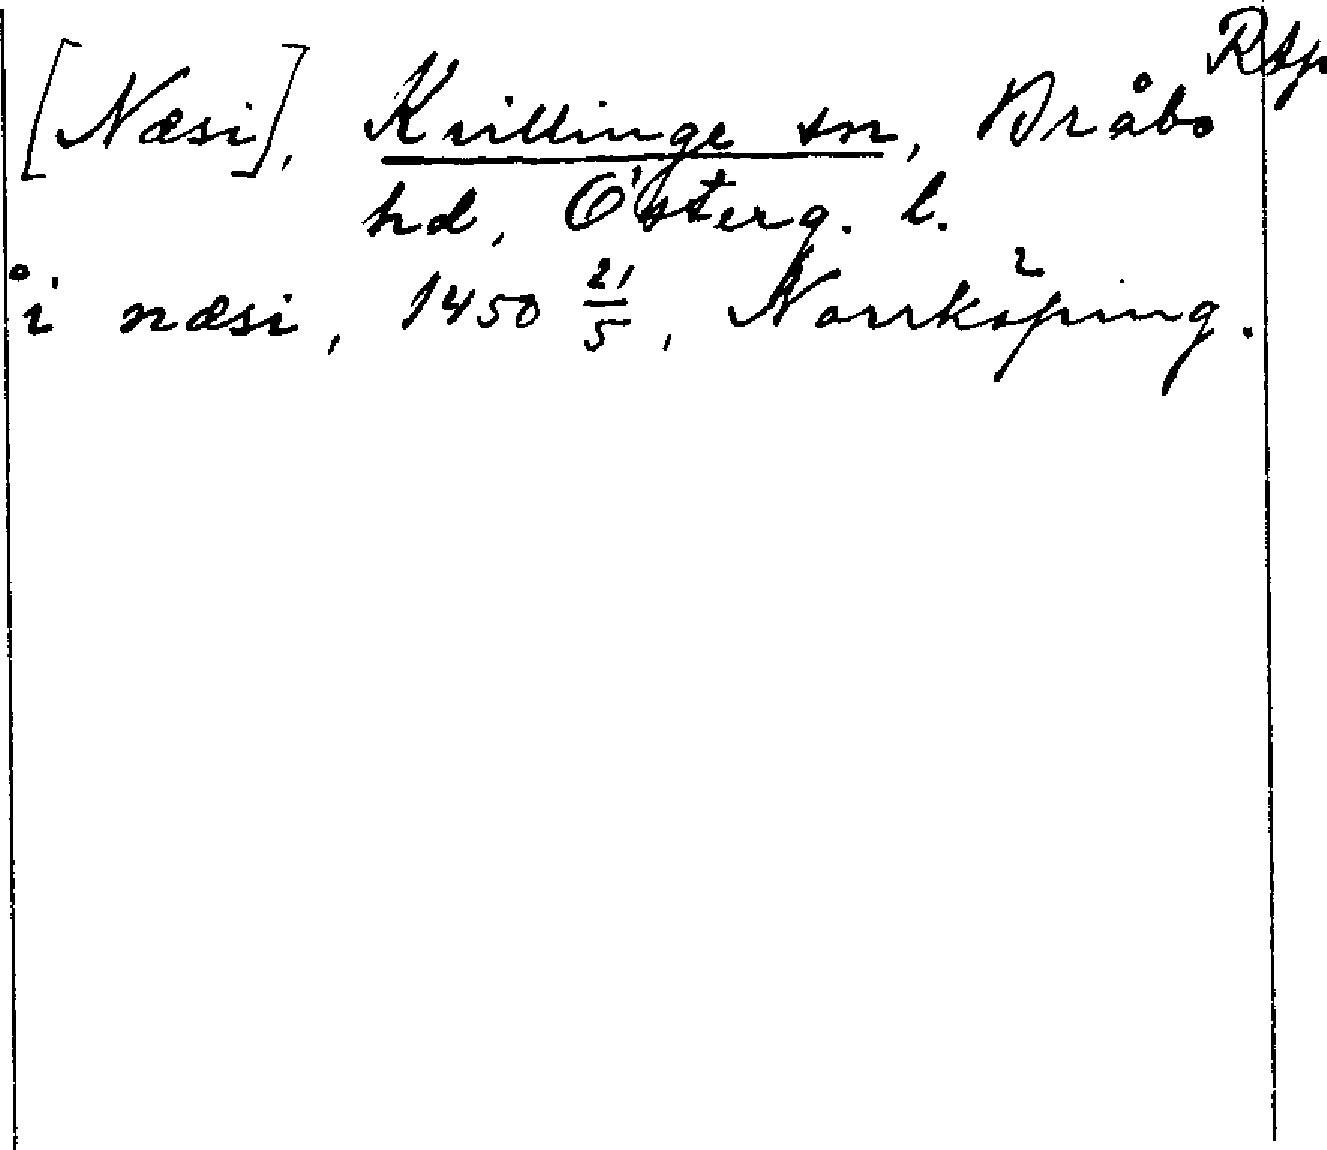 Rap
[Næsi], Kvillinge sn, Bråbo
hd, Österg. l.
i næsi, 1450 21/5, Norrköping.